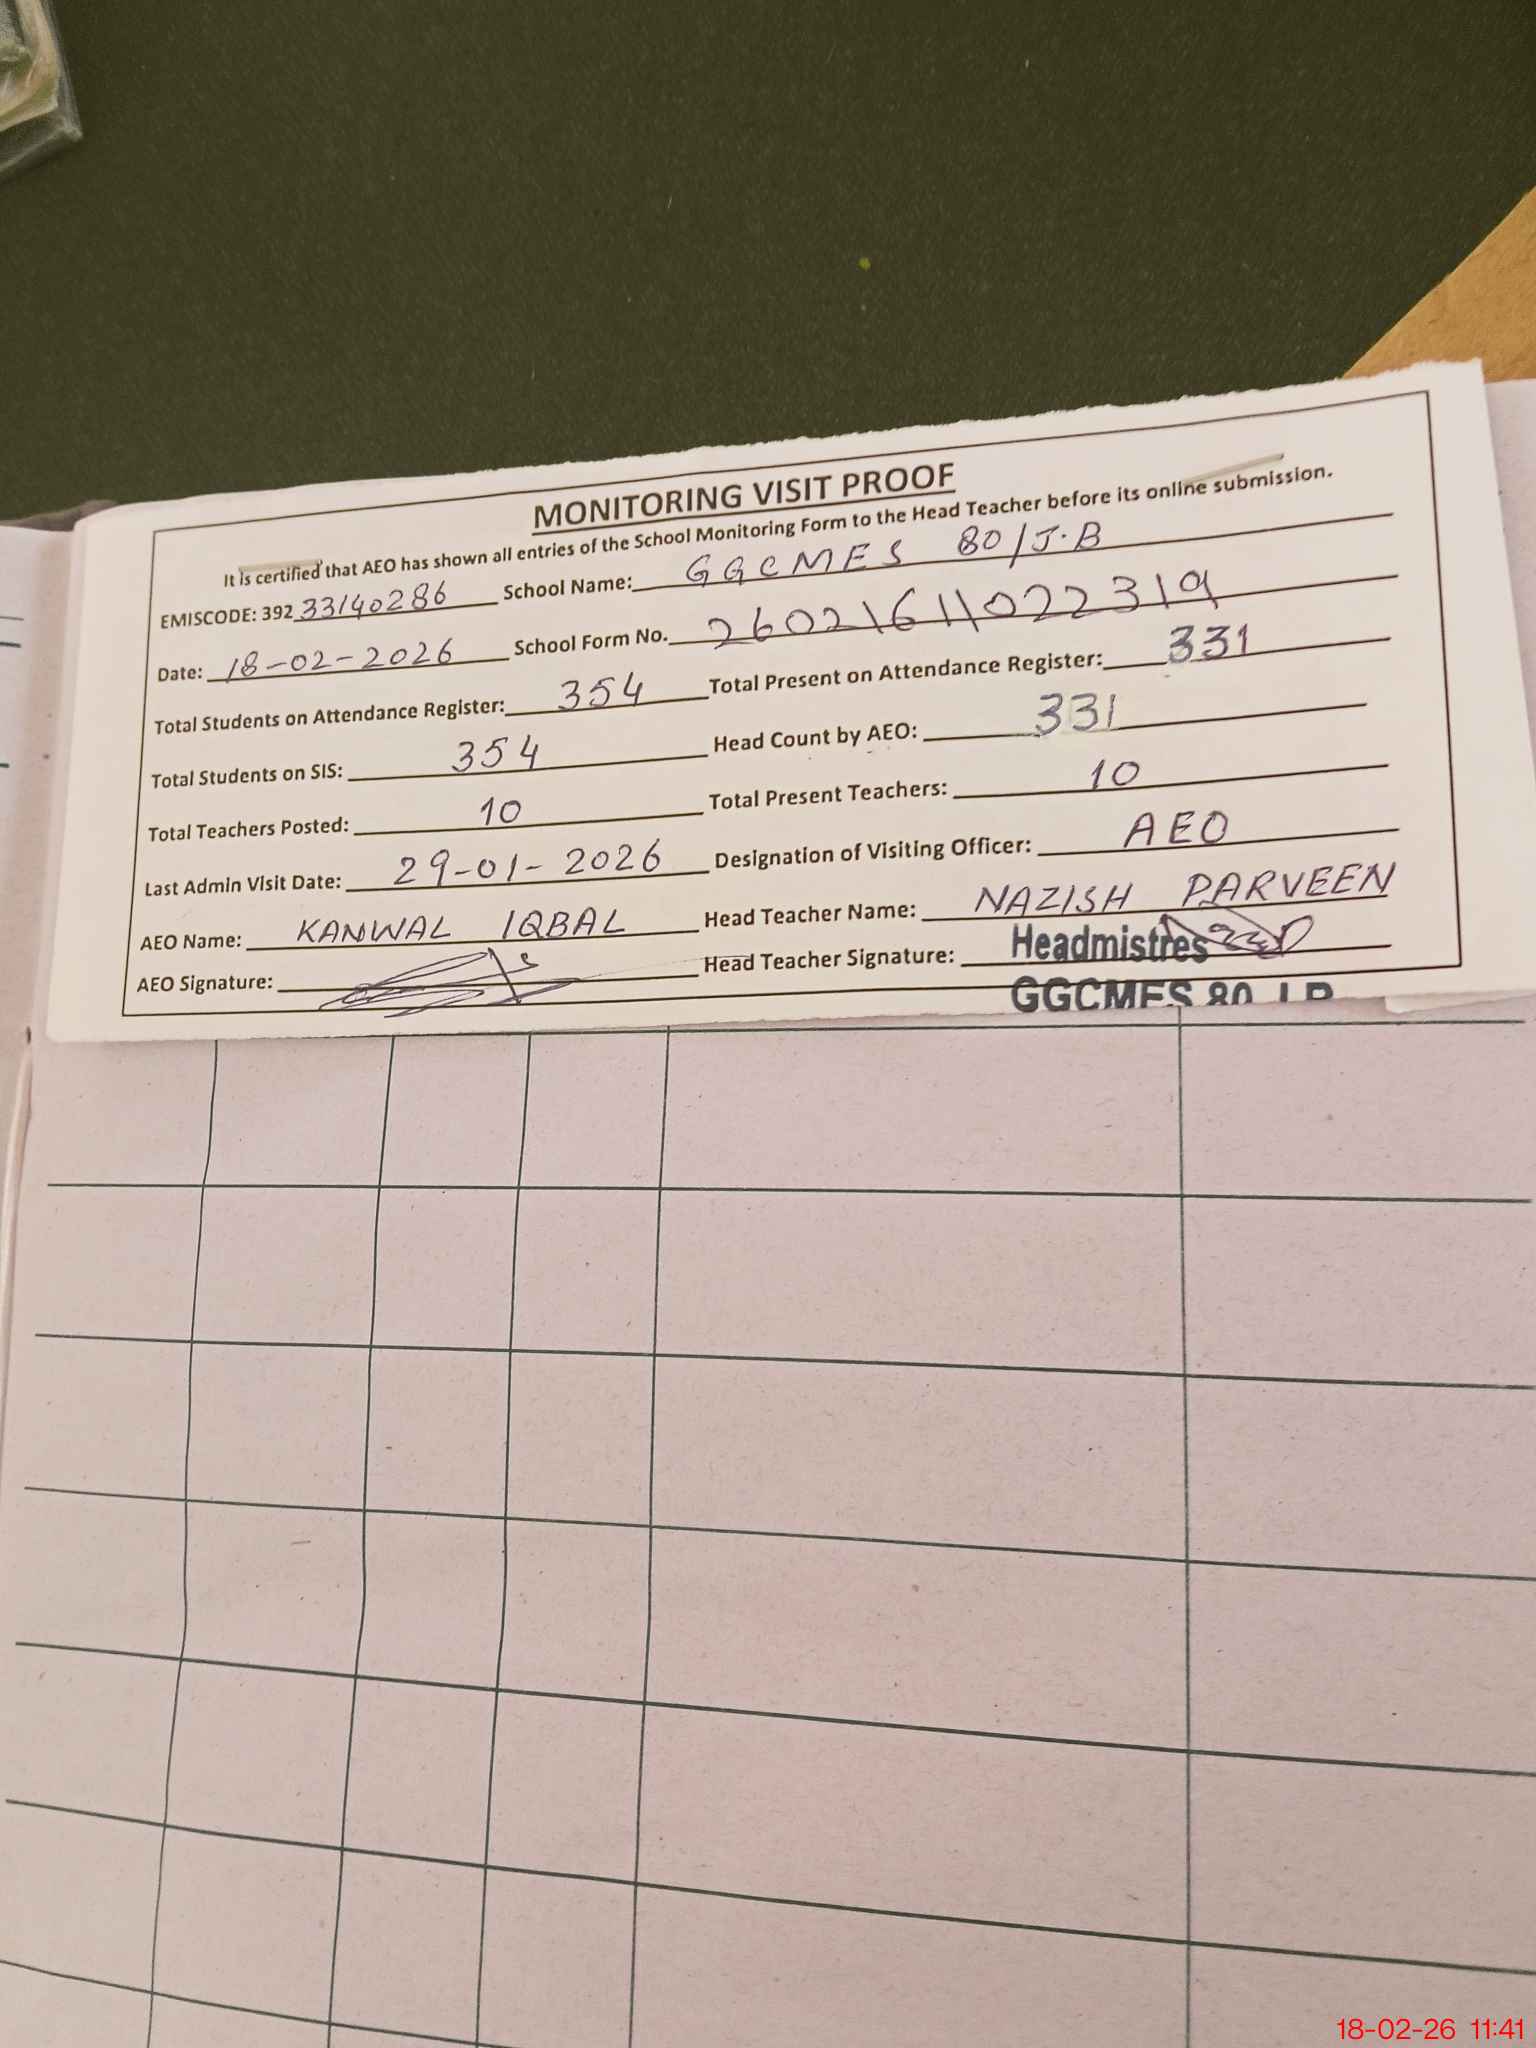 MONITORING VISIT PROOF
It is certified that AEO has shown all entries of the School Monitoring Form to the Head Teacher before its online submission.
EMISCODE: 392 33140286 School Name: GGCMES 80/J.B
Date: 18-02-2026 School Form No. 26021611022319
Total Students on Attendance Register: 354 Total Present on Attendance Register: 331
Total Students on SIS: 354 Head Count by AEO: 331
Total Teachers Posted: 10 Total Present Teachers: 10
Last Admin Visit Date: 29-01-2026 Designation of Visiting Officer: AEO
AEO Name: KANWAL IQBAL Head Teacher Name: NAZISH PARVEEN
AEO Signature: Head Teacher Signature: Headmistres
GGCMES 80
18-02-26 11:41